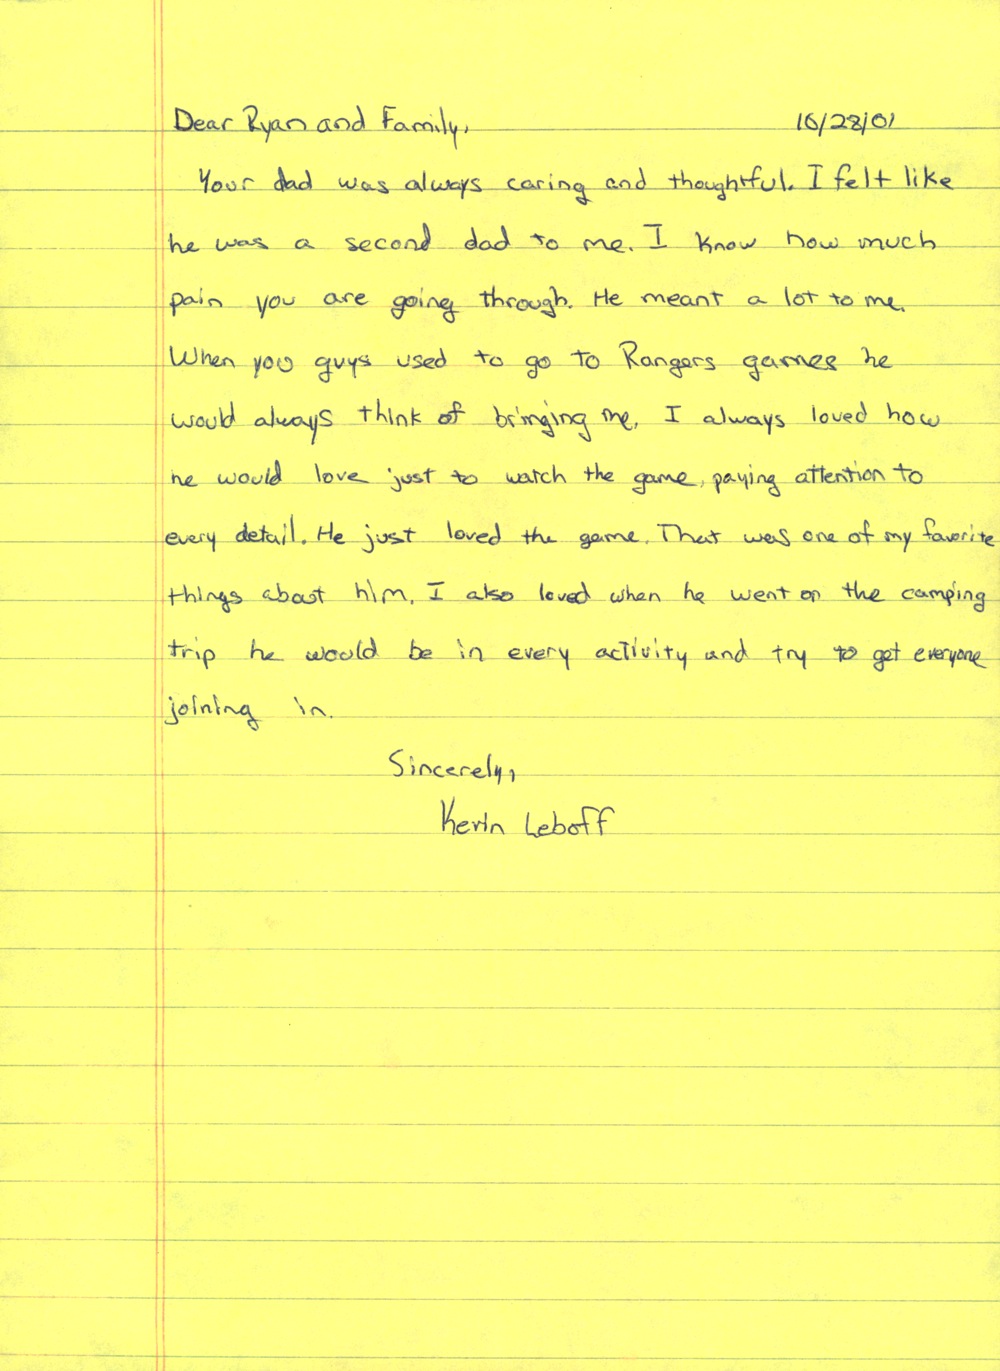 Dear Ryan and Family, 10/28/01
Your dad was always caring and thoughtful. I felt like
he was a second dad to me. I know how much
pain you are going through. He meant a lot to me.
When you guys used to go to Rangers games he
would always think of bringing me. I always loved how
he would love just to watch the game, paying attention to
every detail. He just loved the game. That was one of my favorite
things about him. I also loved when he went on the camping
trip he would be in every activity and try to get everyone
joining in.
Sincerely,
Kevin Leboff